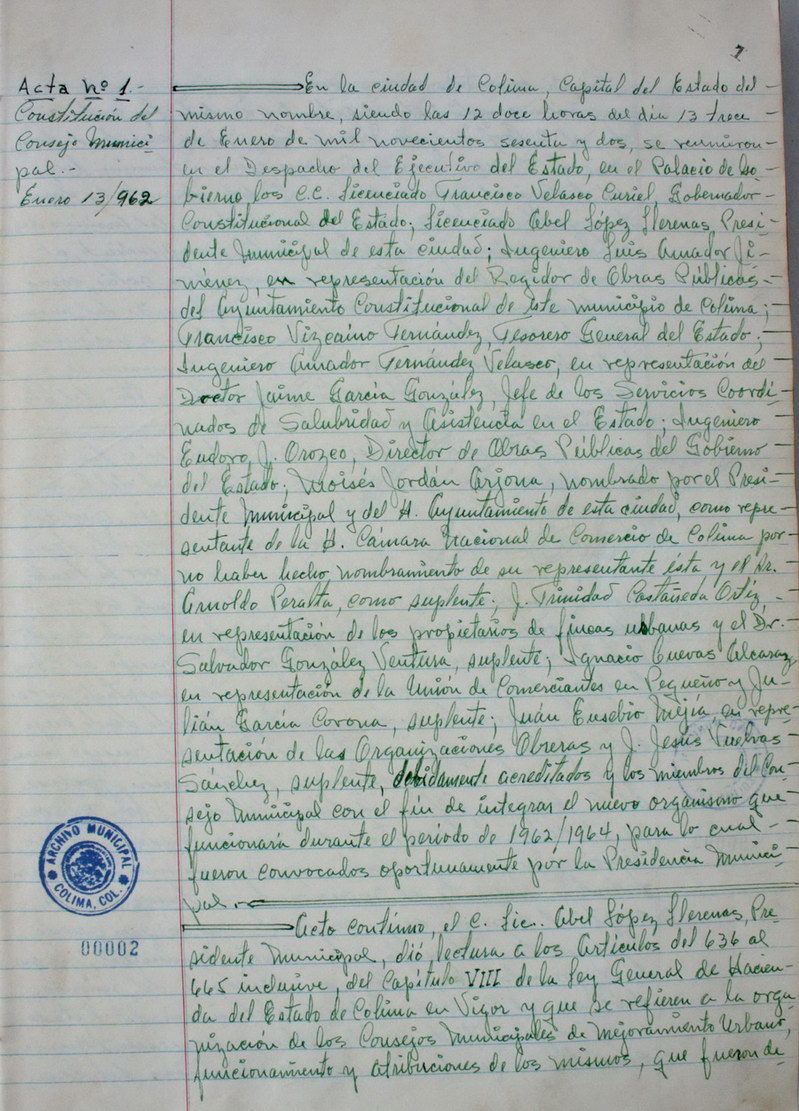 7
Acta Nº 1.-
Constitución del
Consejo Munici-
pal.-
Enero 13/962
En la ciudad de Colima, Capital del Estado del -
mismo nombre, siendo las 12 doce horas del día 13 trece -
de Enero de mil novecientos sesenta y dos, se reunieron -
en el Despacho del Ejecutivo del Estado, en el Palacio de Go-
bierno, los C.C. Licenciado Francisco Velasco Curiel, Gobernador -
Constitucional del Estado; Licenciado Abel López Llerenas, Presi-
dente Municipal de esta ciudad; Ingeniero Luis Amador Ji-
ménez, en representación del Regidor de Obras Públicas -
del Ayuntamiento Constitucional de este municipio de Colima;
Francisco Vizcaíno Fernández, Tesorero General del Estado; -
Ingeniero Amador Fernández Velasco, en representación del
Doctor Jaime García González, Jefe de los Servicios Coordi-
nados de Salubridad y Asistencia en el Estado; Ingeniero
Eudoro J. Orozco, Director de Obras Públicas del Gobierno
del Estado; Moisés Jordán Arjona, nombrado por el Presi-
dente Municipal y del H. Ayuntamiento de esta ciudad, como repre-
sentante de la H. Cámara Nacional de Comercio de Colima por -
no haber hecho nombramiento de su representante ésta y el Sr.
Arnoldo Peralta, como suplente; J. Trinidad Castañeda Ortiz, -
en representación de los propietarios de fincas urbanas y el Dr. -
Salvador González Ventura, suplente; Ignacio Cuevas Alcaraz,
en representación de la Unión de Comerciantes en Pequeño y Ju-
lián García Corona, suplente; Juán Eusebio Mejía en repre-
sentación de las Organizaciones Obreras y J. Jesús Huelvas -
Sánchez, suplente, debidamente acreditados y los miembros del Con-
sejo Municipal con el fin de integrar el nuevo organismo que
funcionará durante el período de 1962/1964, para lo cual -
fueron convocados oportunamente por la Presidencia Munici-
pal.-
Acto continuo, el C. Lic. Abel López Llerenas, Pre-
sidente Municipal, dió lectura a los Artículos del 636 al
665 inclusive, del Capítulo VIII de la Ley General de Hacien-
da del Estado de Colima en Vigor y que se refieren a la orga-
nización de los Consejos Municipales de Mejoramiento Urbano,
funcionamiento y atribuciones de los mismos, que fueron de-
ARCHIVO MUNICIPAL
COLIMA, COL.
00002